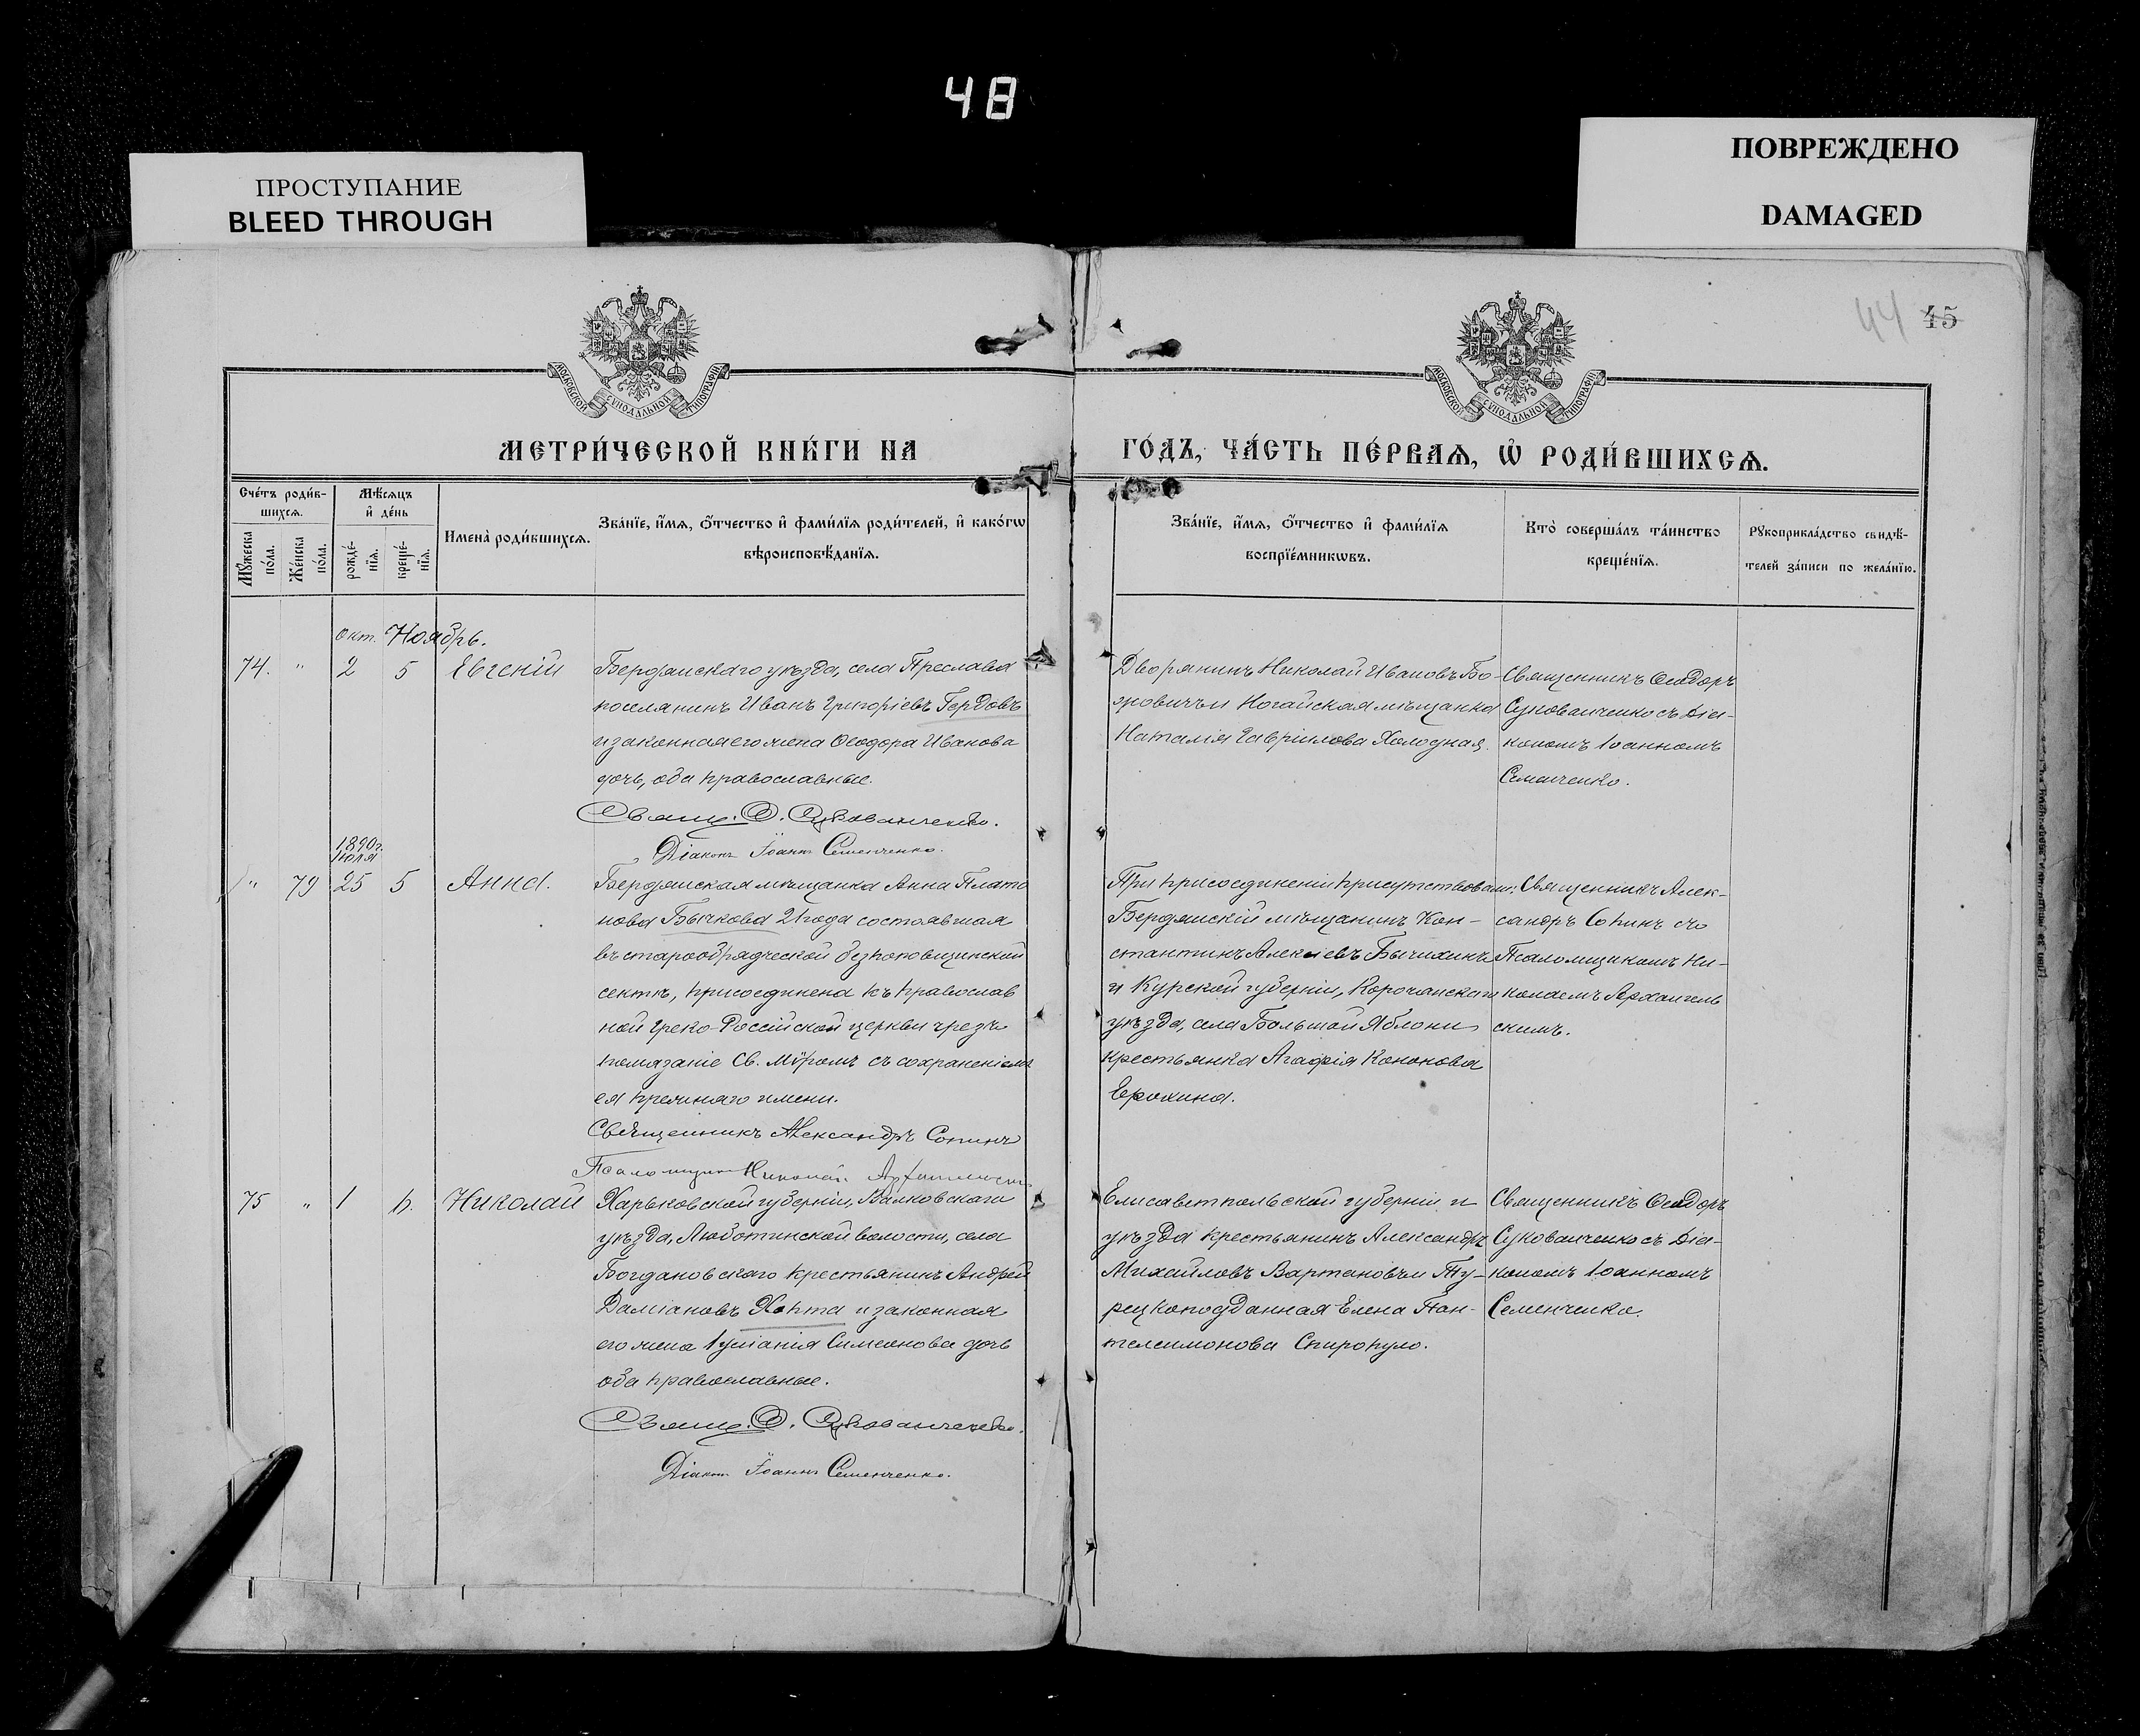 48
ПРОСТУПАНИЕ
BLEED THROUGH
ПОВРЕЖДЕНО
DAMAGED
44 45
МОСКОВСКОЙ СѴНОДАЛЬНОЙ ТИПОГРАФІИ
МОСКОВСКОЙ СѴНОДАЛЬНОЙ ТИПОГРАФІИ
МЕТРИ́ЧЕСКОЙ КНИ́ГИ НА
ГО́ДЪ, ЧА́СТЬ ПЕ́РВАѦ, Ѡ҆ РОДИ́ВШИХСѦ.
Сче́тъ роди́в-
шихсѧ.
Мꙋ́жеска по́ла.
Же́нска по́ла.
Мѣ́сѧцъ
и҆ де́нь
рожде́-нїѧ.
креще́-нїѧ.
Имена̀ роди́вшихсѧ.
Зва́нїе, и҆́мѧ, ѻ҆́тчество и҆ фами́лїѧ роди́телей, и҆ како́гѡ
вѣроисповѣ́данїѧ.
Зва́нїе, и҆́мѧ, ѻ҆́тчество и҆ фами́лїѧ
воспрїе́мникѡвъ.
Кто̀ соверша́лъ та́инство
креще́нїѧ.
Рꙋкоприкла́дство свидѣ́-
телей за́писи по жела́нїю.
окт. Ноябрь.
74. " 2 5 Евгеній
Бердянскаго уѣзда, села Преслава
поселянинъ Иванъ Григоріевъ Гердовъ
и законная его жена Ѳеодора Иванова
дочь, оба православные.
Свящ. Ѳ. Сукованченко.
Діаконъ Іоаннъ Семенченко.
Дворянинъ Николай Ивановъ Бо-
жовичъ и Ногайская мѣщанка
Наталія Гавріилова Холодная.
Священникъ Ѳеодоръ
Сукованченко съ Діа-
кономъ Іоанномъ
Семенченко.
1890 г.
Іюля
" 79 25 5 Анна.
Бердянская мѣщанка Анна Плато
нова Бычкова 21 года состоявшая
въ старообрядческой безпоповщинской
сектѣ, присоединена къ православ
ной Греко-Россійской церкви чрезъ
помазаніе Св. Мѵромъ съ сохраненіемъ
ея прежняго имени.
Священникъ Александръ Сопинъ
Псаломщикъ Николай
При присоединеніи присутствовали:
Бердянскій мѣщанинъ Кон-
стантинъ Алексіевъ Бычихинъ
и Курской губерніи, Корочанскаго
уѣзда, села Большой Яблони
крестьянка Агафія Кононова
Ерохина.
Священникъ Алек-
сандръ Сопинъ съ
Псаломщикомъ Ни-
колаемъ Архангель
скимъ.
75 " 1 6. Николай
Харьковской губерніи, Валковскаго
уѣзда, Люботинской волости, села
Богдановскаго крестьянинъ Андрей
Даміановъ Хопта и законная
его жена Іуліанія Симеонова дочь
оба православные.
Свящ. Ѳ. Сукованченко.
Діаконъ Іоаннъ Семенченко.
Елисаветпольской губерніи и
уѣзда крестьянинъ Александръ
Михайловъ Вартановъ и Ту-
рецкоподданная Елена Пан-
телеимонова Спиропуло.
Священникъ Ѳеодоръ
Сукованченко съ Діа-
кономъ Іоанномъ
Семенченко.